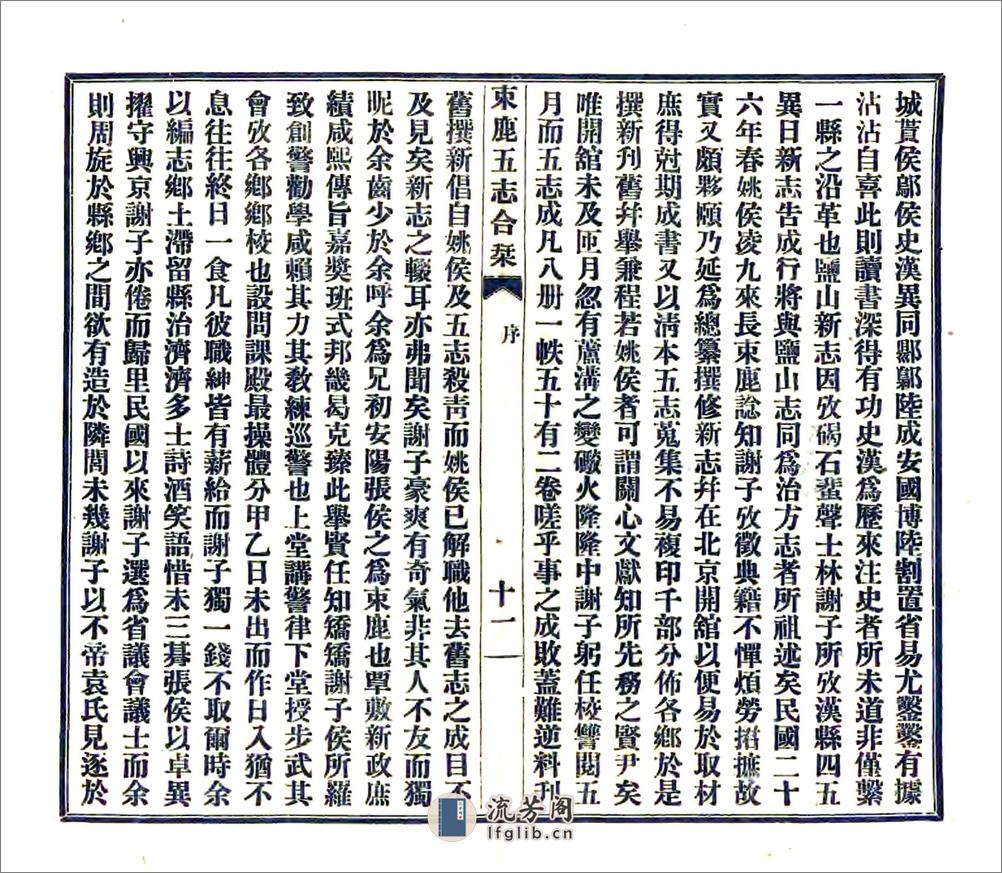 城貰侯鄔侯史漢異同鄡鄔陸成安國博陸割置省易尤鑿鑿有據
沾沾自喜此則讀書深得有功史漢爲歷來注史者所未道非僅繫
一縣之沿革也鹽山新志因攷碣石蜚聲士林謝子所攷漢縣四五
異日新志告成行將與鹽山志同爲治方志者所祖述矣民國二十
六年春姚侯凌九來長束鹿諗知謝子攷徵典籍不憚煩勞捃摭故
實又頗夥頤乃延爲總纂撰修新志幷在北京開舘以便易於取材
庶得尅期成書又以淸本五志蒐集不易複印千部分佈各鄕於是
撰新刊舊幷擧兼程若姚侯者可謂關心文獻知所先務之賢尹矣
唯開舘未及匝月忽有蘆溝之變礮火隆隆中謝子躬任校讐閱五
月而五志成凡八册一帙五十有二卷嗟乎事之成敗蓋難逆料刊
束鹿五志合栞
序
十一
舊撰新倡自姚侯及五志殺靑而姚侯已解職他去舊志之成目不
及見矣新志之輟耳亦弗聞矣謝子豪爽有奇氣非其人不友而獨
昵於余齒少於余呼余爲兄初安陽張侯之爲束鹿也覃敷新政庶
績咸熙傳旨嘉奬班式邦畿曷克臻此擧賢任知矯矯謝子侯所羅
致創警勸學咸賴其力其敎練巡警也上堂講警律下堂授步武其
會攷各鄕鄕校也設問課殿最操體分甲乙日未出而作日入猶不
息往往終日一食凡彼職紳皆有薪給而謝子獨一錢不取爾時余
以編志鄕土滯留縣治濟濟多士詩酒笑語惜未三朞張侯以卓異
擢守興京謝子亦倦而歸里民國以來謝子選爲省議會議士而余
則周旋於縣鄕之間欲有造於隣閭未幾謝子以不帝袁氏見逐於
流芳阁
lfglib.cn